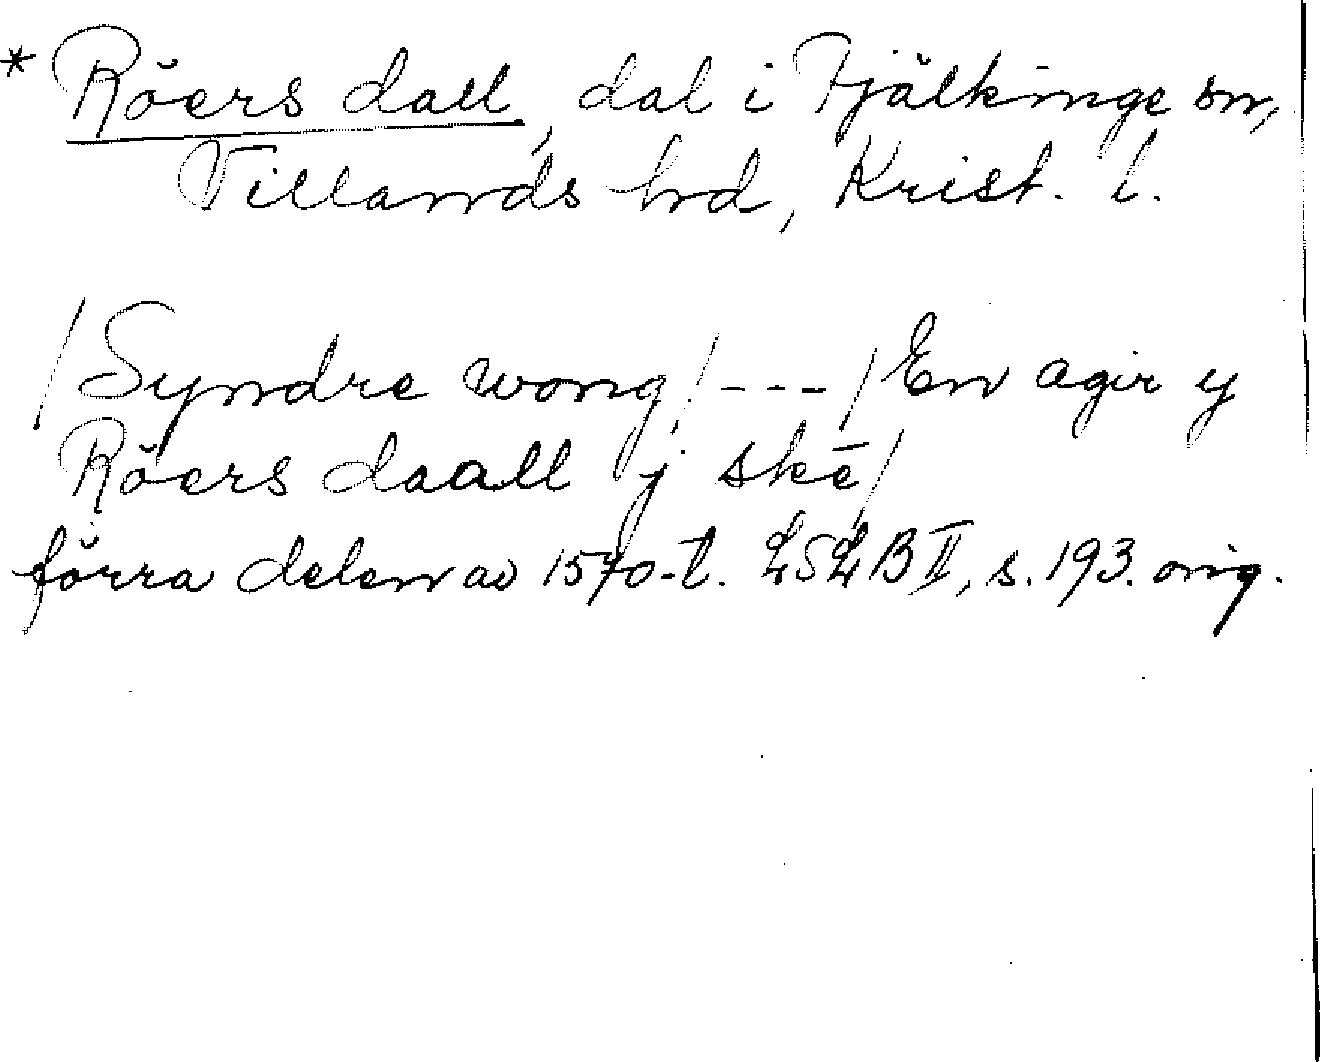 * Röers dall, dal i Fjälkinge sn,
Villands hd, Krist. l.
/Syndre wong/---/En agir y
Röers daall j skē/
förra delen av 1570-t. LSLB II, s. 193. orig.